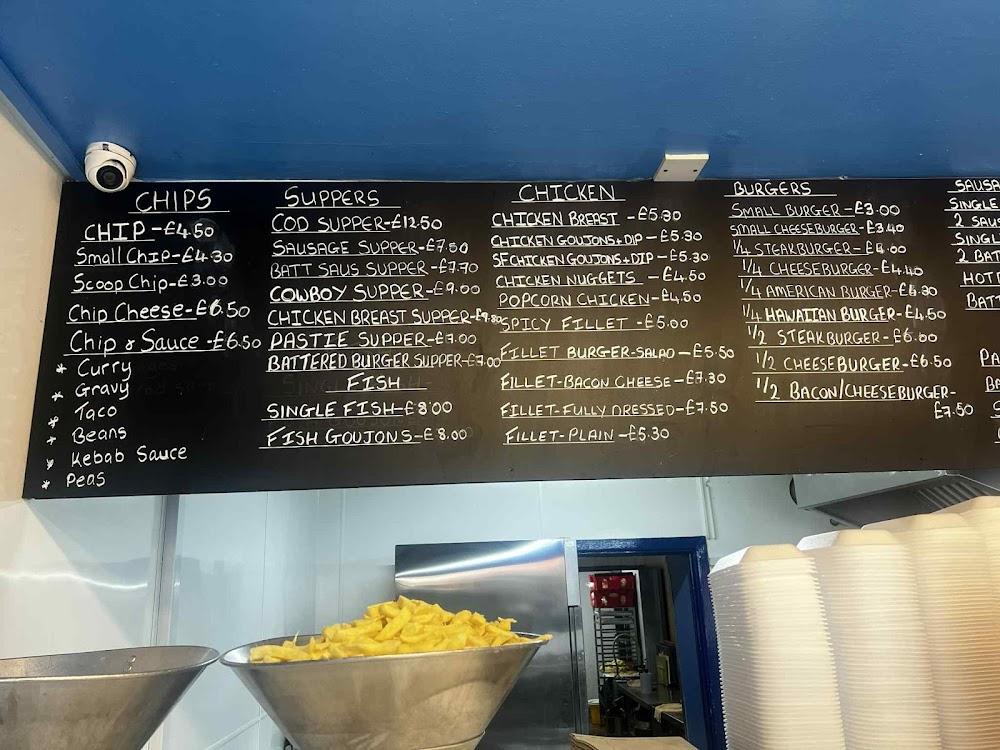 CHIPS
CHIP - £4.50
Small Chip - £4.30
Scoop Chip - £3.00
Chip Cheese - £6.50
Chip & Sauce - £6.50
* Curry
* Gravy
* Taco
* Beans
* Kebab Sauce
* Peas
SUPPERS
COD SUPPER - £12.50
SAUSAGE SUPPER - £7.50
BATT SAUS SUPPER - £7.70
COWBOY SUPPER - £9.00
CHICKEN BREAST SUPPER - £9.80
PASTIE SUPPER - £7.00
BATTERED BURGER SUPPER - £7.00
FISH
SINGLE FISH - £8.00
FISH GOUJONS - £8.00
CHICKEN
CHICKEN BREAST - £5.30
CHICKEN GOUJONS + DIP - £5.30
SF CHICKEN GOUJONS + DIP - £5.30
CHICKEN NUGGETS - £4.50
POPCORN CHICKEN - £4.50
SPICY FILLET - £5.00
FILLET BURGER - SALAD - £5.50
FILLET - BACON CHEESE - £7.30
FILLET - FULLY DRESSED - £7.50
FILLET - PLAIN - £5.30
BURGERS
SMALL BURGER - £3.00
SMALL CHEESEBURGER - £3.40
1/4 STEAKBURGER - £4.00
1/4 CHEESEBURGER - £4.40
1/4 AMERICAN BURGER - £4.30
1/4 HAWAIIAN BURGER - £4.50
1/2 STEAKBURGER - £6.00
1/2 CHEESEBURGER - £6.50
1/2 BACON/CHEESEBURGER -
£7.50
SAUSA
SINGLE
2 SAUS
SINGL
2 BAT
HOT
BAT
PA